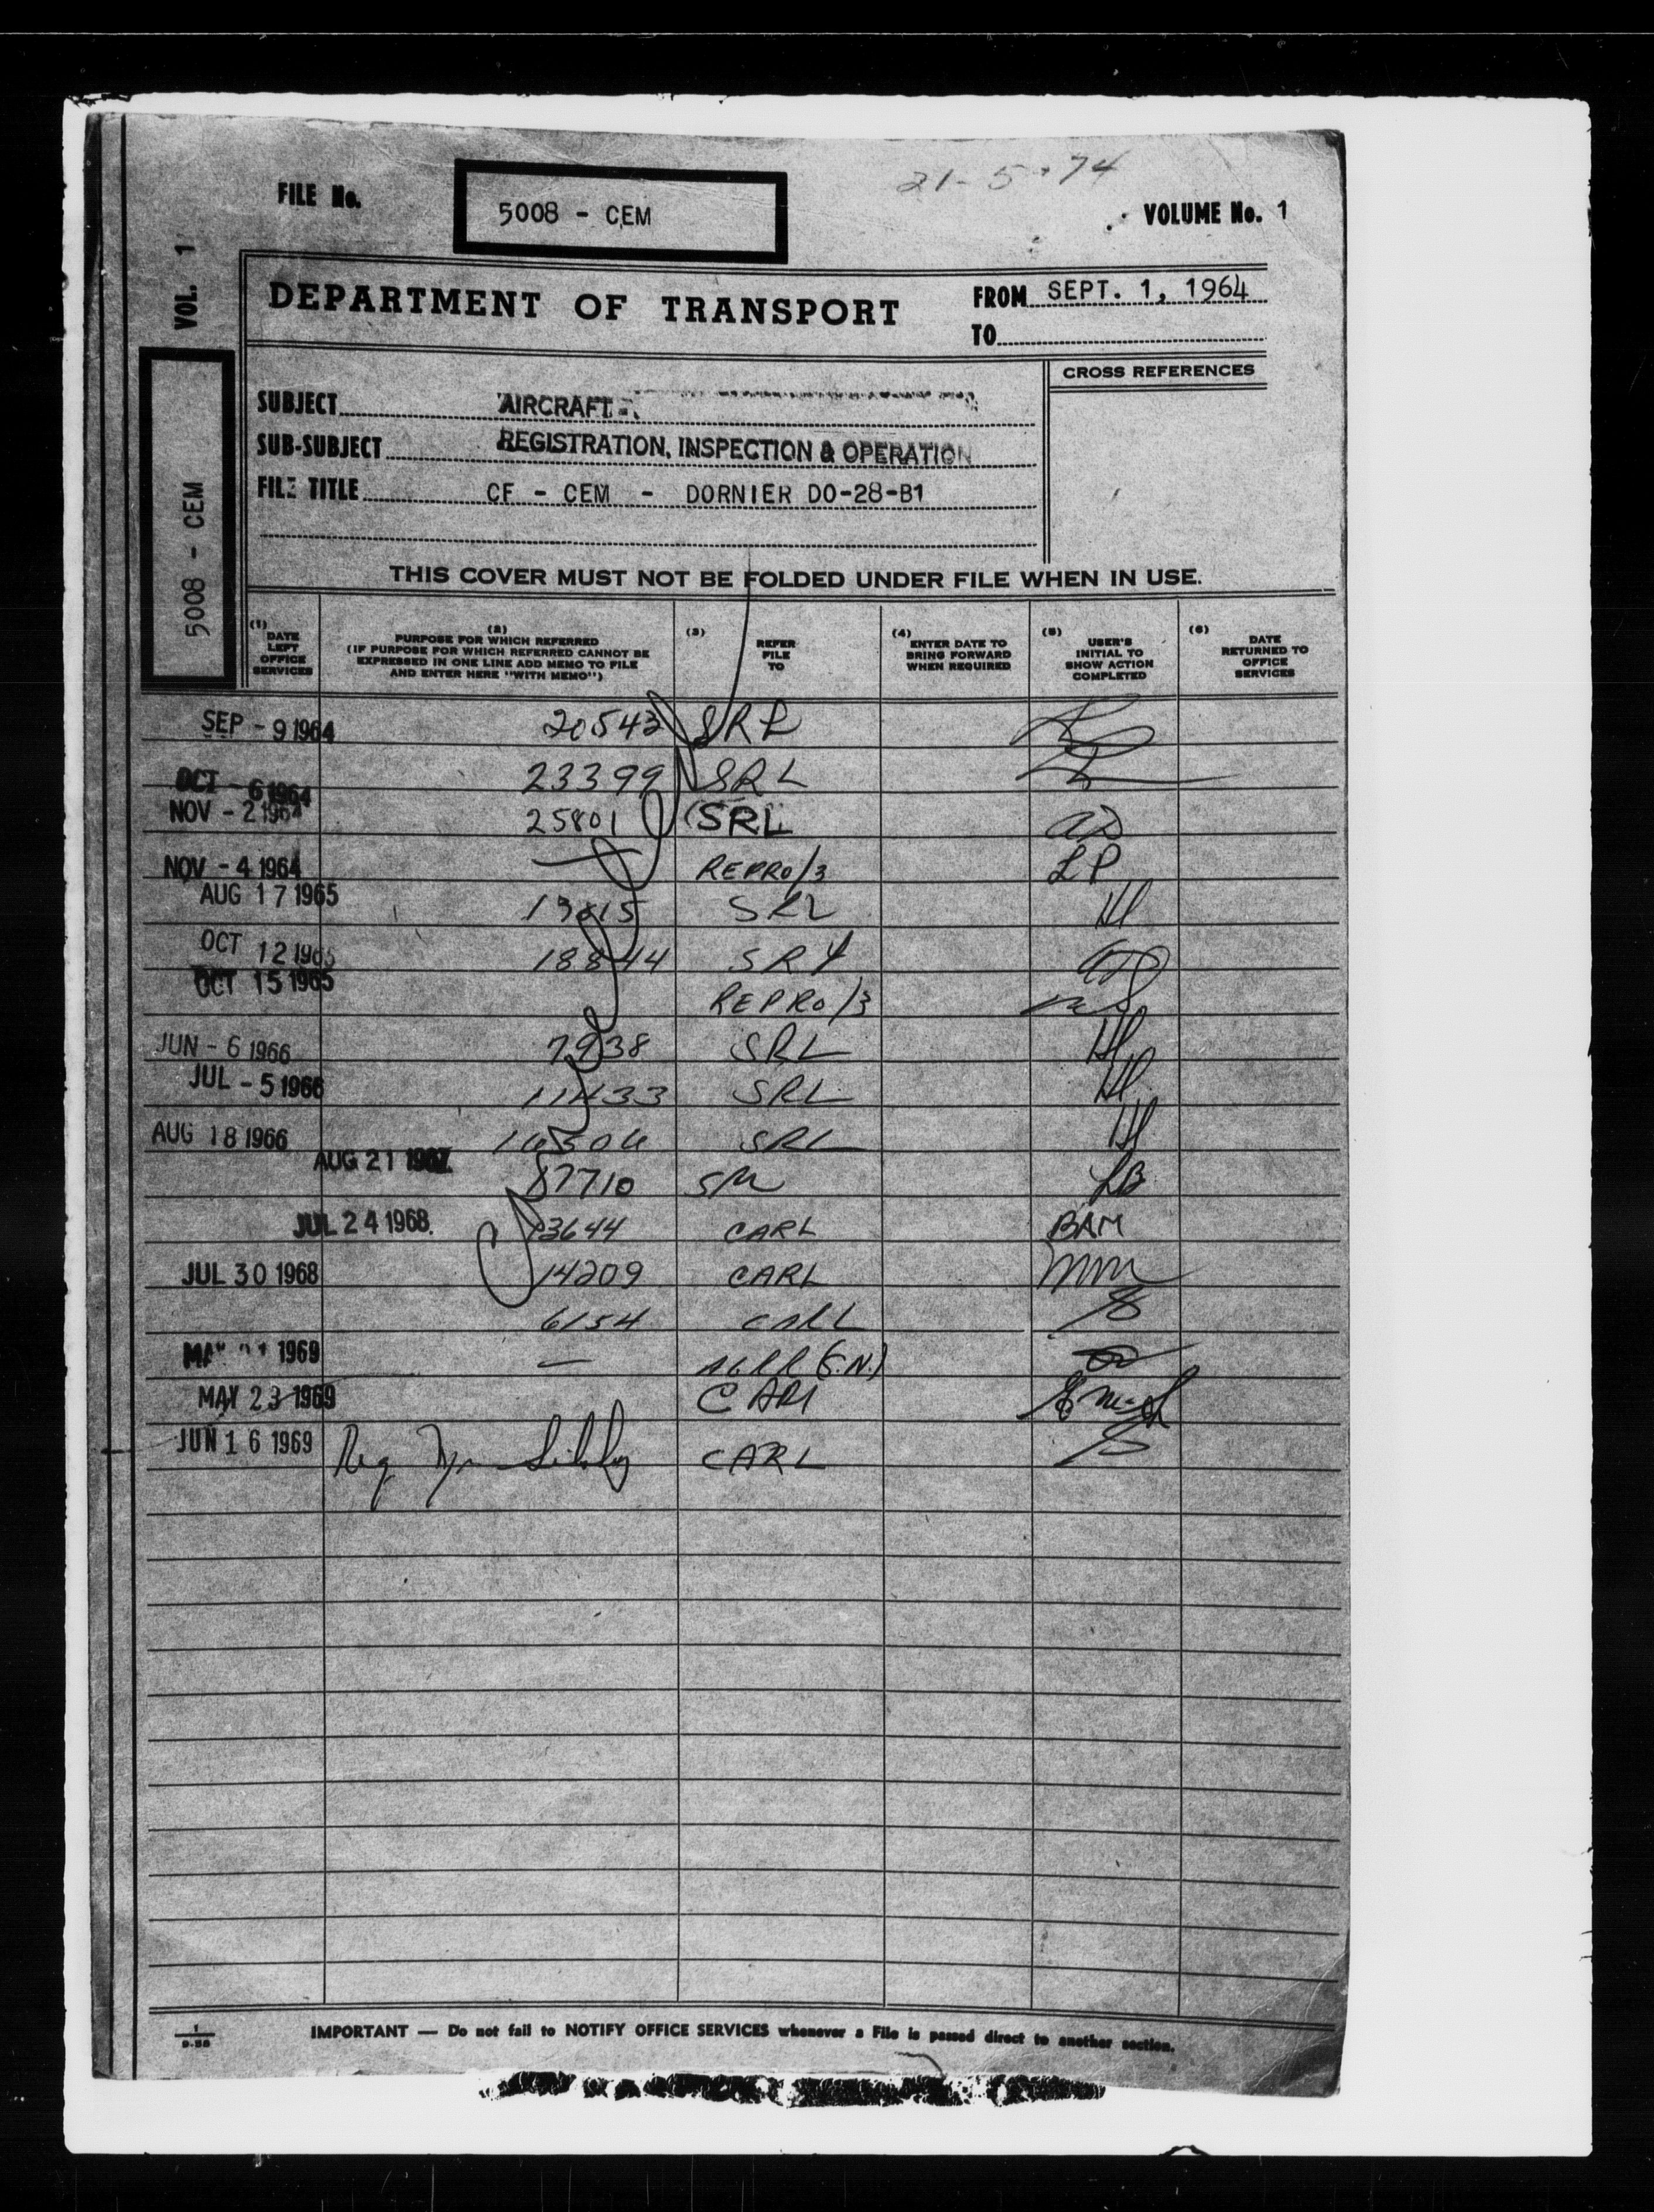 21-5-74
FILE No. 5008 - CEM VOLUME No. 1
VOL. 1
5008 - CEM
DEPARTMENT OF TRANSPORT
FROM SEPT. 1, 1964
TO
CROSS REFERENCES
SUBJECT AIRCRAFT
SUB-SUBJECT REGISTRATION, INSPECTION & OPERATION
FILE TITLE CF - CEM - DORNIER DO-28-B1
THIS COVER MUST NOT BE FOLDED UNDER FILE WHEN IN USE.
(1) DATE LEFT OFFICE SERVICES
(2) PURPOSE FOR WHICH REFERRED (IF PURPOSE FOR WHICH REFERRED CANNOT BE EXPRESSED IN ONE LINE ADD MEMO TO FILE AND ENTER HERE "WITH MEMO")
(3) REFER FILE TO
(4) ENTER DATE TO BRING FORWARD WHEN REQUIRED
(5) USER'S INITIAL TO SHOW ACTION COMPLETED
(6) DATE RETURNED TO OFFICE SERVICES
SEP - 9 1964 20543 SRL
OCT - 6 1964 23399 SRL
NOV - 2 1964 25801 SRL
NOV - 4 1964 REPRO/3 LP
AUG 17 1965 SRL
OCT 12 1965 18844
OCT 15 1965 REPRO/3
JUN - 6 1966 7938 SRL
JUL - 5 1966 11433 SRL
AUG 18 1966 SRL
AUG 21 1967 LB
JUL 24 1968 13644 CARL BAM
JUL 30 1968 14209 CARL
6154 CARL
1969
MAY 23 1969
JUN 16 1969 CARL
1
9-58
IMPORTANT — Do not fail to NOTIFY OFFICE SERVICES whenever a File is passed direct to another section.